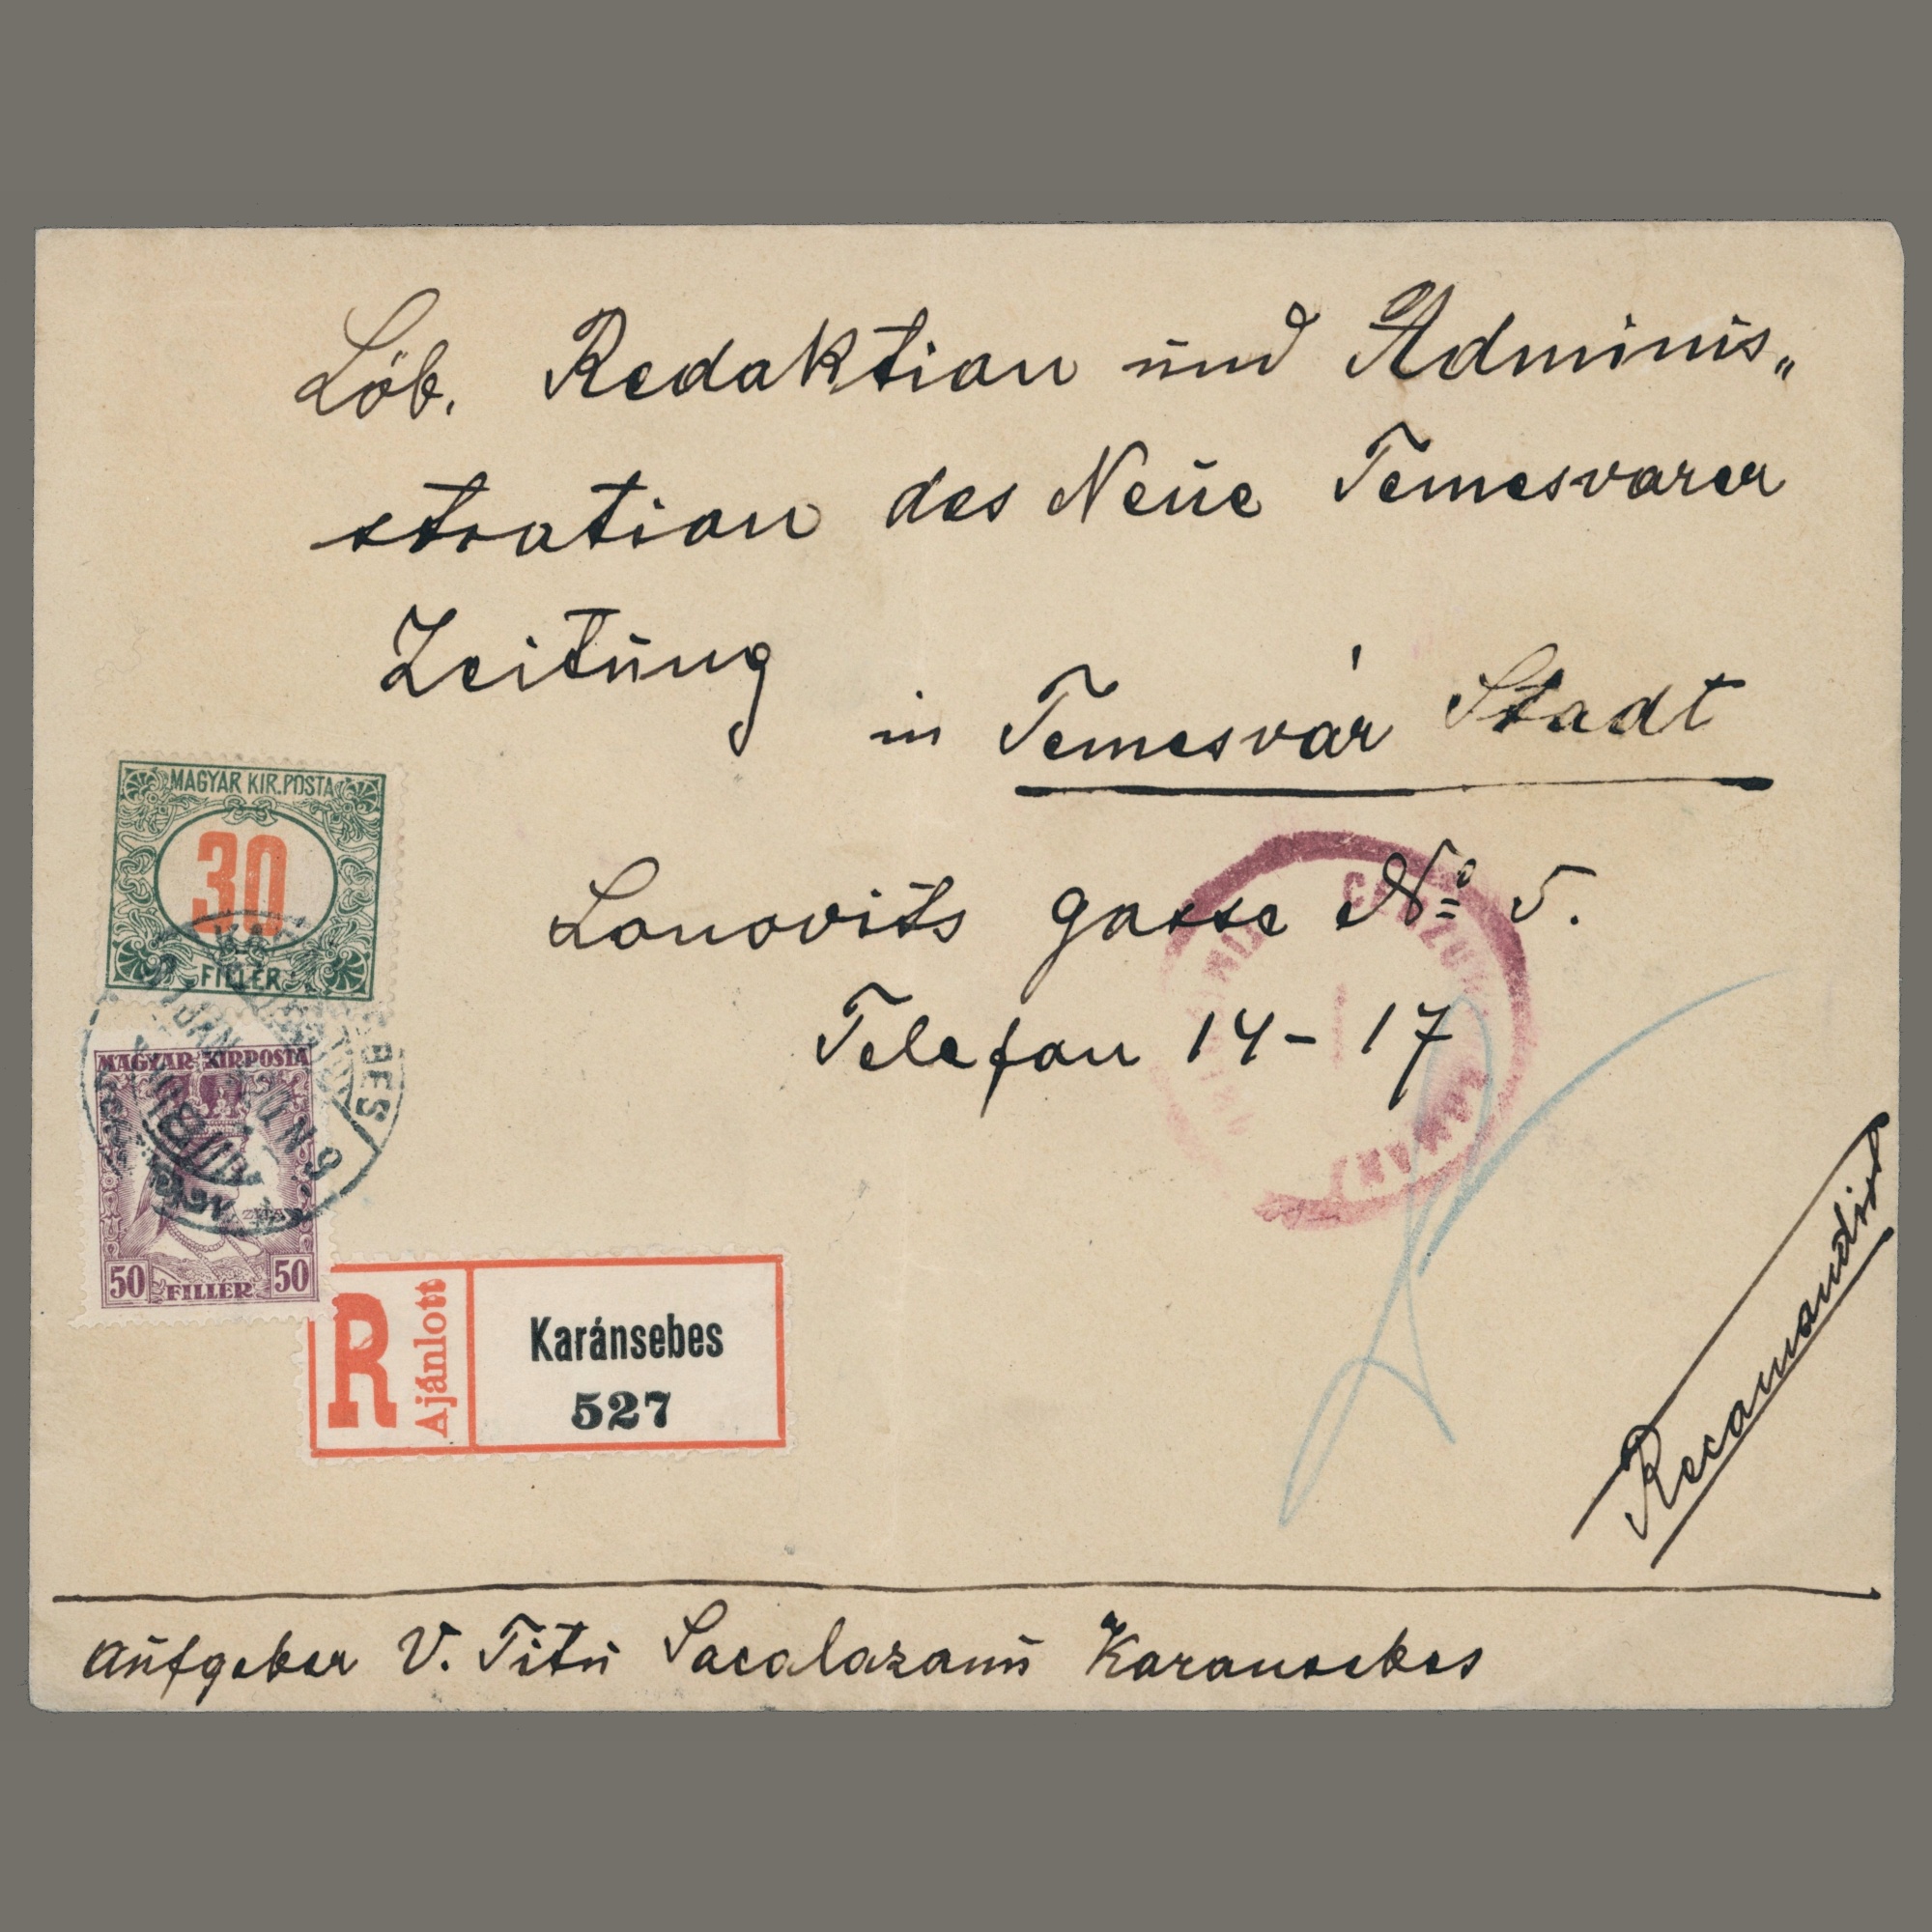 Löb. Redaktion und Adminis„
stration des Neue Temesvarer
Zeitung
in Temesvár Stadt
Lonovits gasse No 5.
Telefon 14-17
MAGYAR KIR. POSTA
30
FILLÉR
MAGYAR KIR. POSTA
ZITA
50 FILLÉR 50
R
Ajánlott
Karánsebes
527
Recomandist
Aufgeber V. Titu Sacalazanu Karansebes